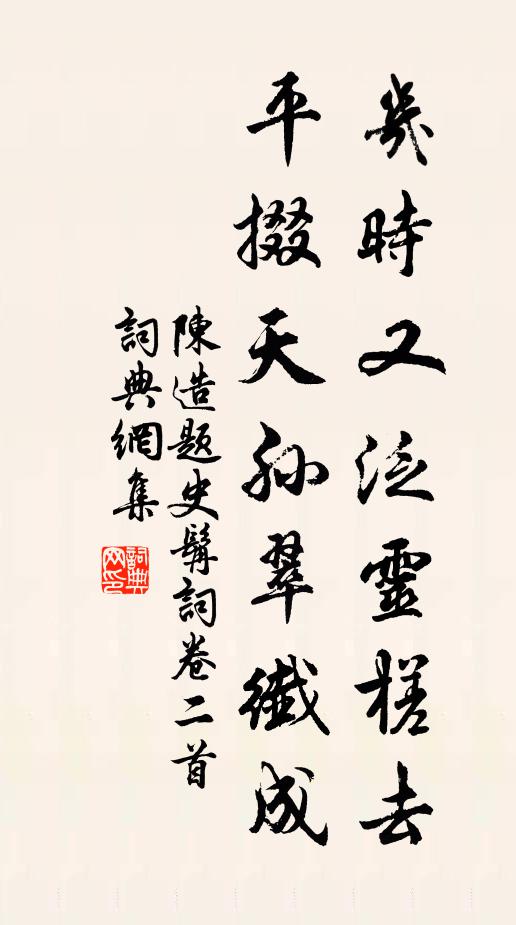 幾時又泛靈槎去
平掇天孙翠織成
陳造題史髯詞卷二首
詞典網集
詞典网印